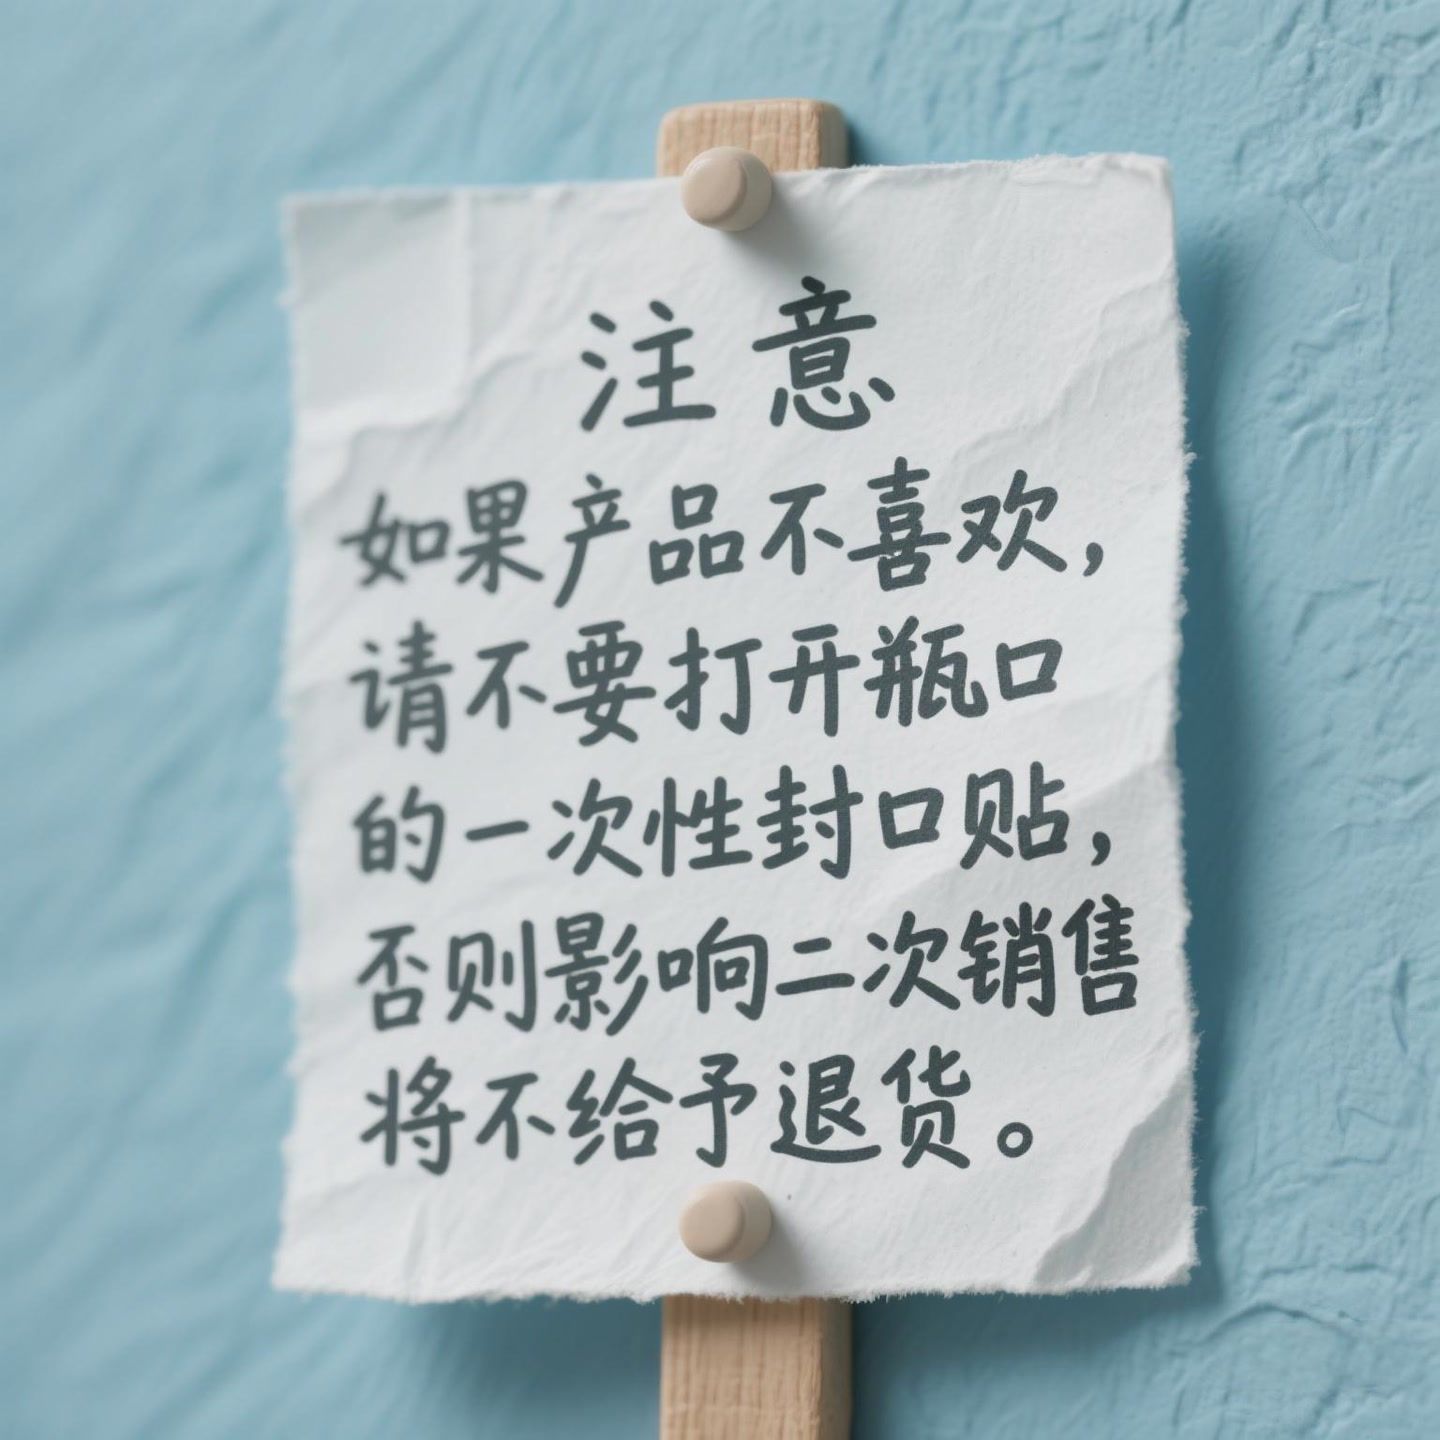 注意
如果产品不喜欢，
请不要打开瓶口
的一次性封口贴，
否则影响二次销售
将不给予退货。